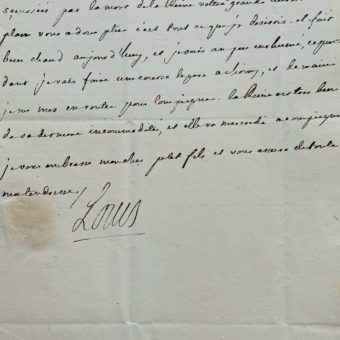 par la mort de la Reine votre grande
plan vous a donc plu c'est tout ce que je desirois. il fait
bien chaud aujourd'huy, et je suis un peu enhumé, cepen
dant je vais faire une course legere a et demain
je me mes en route pour Compiegne. la Reine est bien
de sa derniere incommodité, et elle va me a compiegne
je vous embrasse mon cher petit fils et vous assure de toute
ma tendresse /
Louis